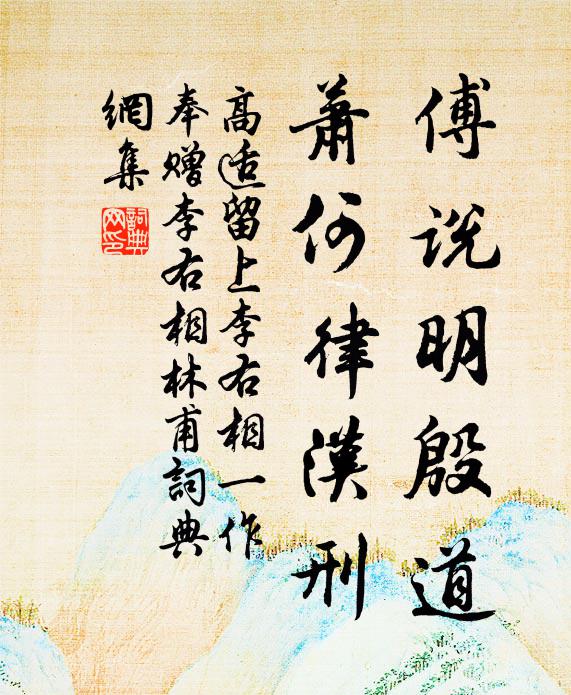 傅说明殷道
萧何律漢刑
高适留上李右相一作
奉赠李右相林甫詞典
網集
詞典
网印